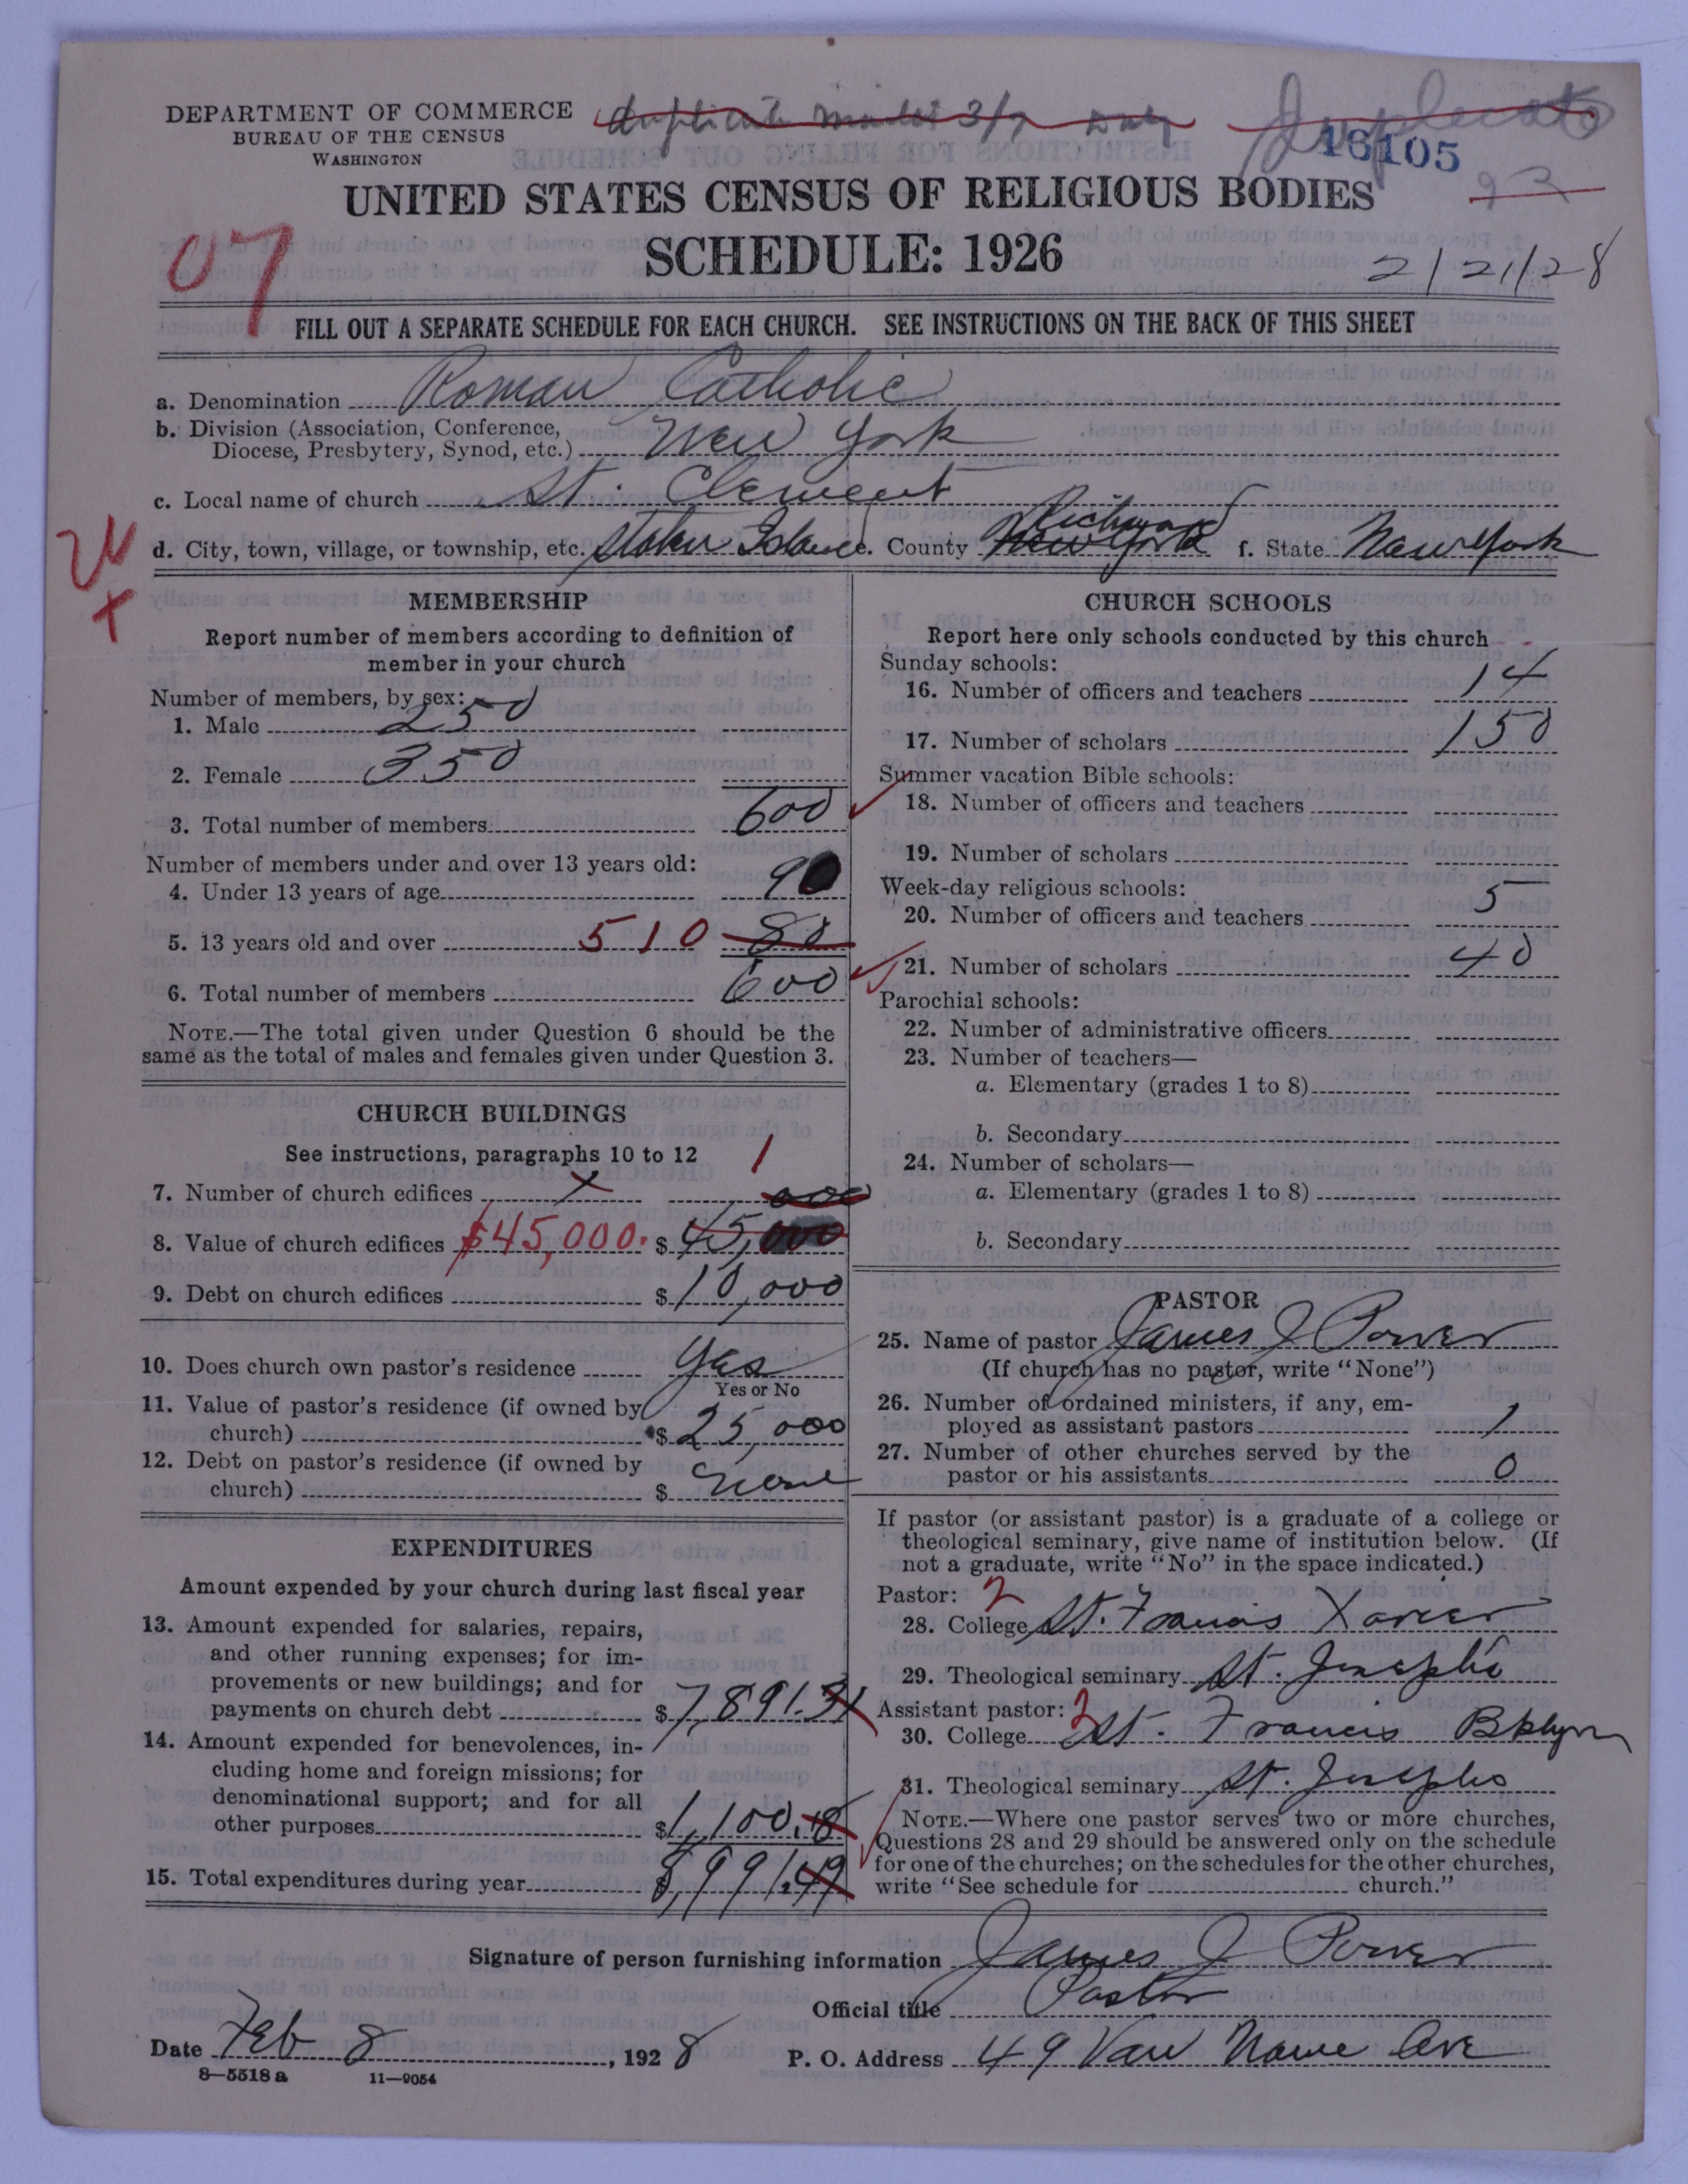 DEPARTMENT OF COMMERCE
BUREAU OF THE CENSUS
WASHINGTON
duplicate mailed 3/7
Duplicate
16105
93
UNITED STATES CENSUS OF RELIGIOUS BODIES
SCHEDULE: 1926
07
2/21/28
FILL OUT A SEPARATE SCHEDULE FOR EACH CHURCH. SEE INSTRUCTIONS ON THE BACK OF THIS SHEET
a. Denomination Roman Catholic
b. Division (Association, Conference,
Diocese, Presbytery, Synod, etc.) New York
c. Local name of church St. Clement
d. City, town, village, or township, etc. Staten Island e. County New York Richmond f. State New York
MEMBERSHIP
Report number of members according to definition of
member in your church
Number of members, by sex:
1. Male 250
2. Female 350
3. Total number of members 600
Number of members under and over 13 years old:
4. Under 13 years of age 90
5. 13 years old and over 510
6. Total number of members 600
NOTE.—The total given under Question 6 should be the
same as the total of males and females given under Question 3.
CHURCH BUILDINGS
See instructions, paragraphs 10 to 12
7. Number of church edifices x 1
8. Value of church edifices $45,000. $ 45,000
9. Debt on church edifices $ 10,000
10. Does church own pastor's residence Yes
Yes or No
11. Value of pastor's residence (if owned by
church) $ 25,000
12. Debt on pastor's residence (if owned by
church) $ None
EXPENDITURES
Amount expended by your church during last fiscal year
13. Amount expended for salaries, repairs,
and other running expenses; for im-
provements or new buildings; and for
payments on church debt $ 7,891.31
14. Amount expended for benevolences, in-
cluding home and foreign missions; for
denominational support; and for all
other purposes $ 1,100.18
15. Total expenditures during year $ 8,991.49
CHURCH SCHOOLS
Report here only schools conducted by this church
Sunday schools:
16. Number of officers and teachers 14
17. Number of scholars 150
Summer vacation Bible schools:
18. Number of officers and teachers
19. Number of scholars
Week-day religious schools:
20. Number of officers and teachers 5
21. Number of scholars 40
Parochial schools:
22. Number of administrative officers
23. Number of teachers—
a. Elementary (grades 1 to 8)
b. Secondary
24. Number of scholars—
a. Elementary (grades 1 to 8)
b. Secondary
PASTOR
25. Name of pastor James J Power
(If church has no pastor, write "None")
26. Number of ordained ministers, if any, em-
ployed as assistant pastors 1
27. Number of other churches served by the
pastor or his assistants 0
If pastor (or assistant pastor) is a graduate of a college or
theological seminary, give name of institution below. (If
not a graduate, write "No" in the space indicated.)
Pastor: 2
28. College St. Francis Xavier
29. Theological seminary St. Josephs
Assistant pastor: 2
30. College St. Francis Bklyn
31. Theological seminary St. Josephs
NOTE.—Where one pastor serves two or more churches,
Questions 28 and 29 should be answered only on the schedule
for one of the churches; on the schedules for the other churches,
write "See schedule for church."
Signature of person furnishing information James J Power
Official title Pastor
Date Feb 8, 1928 P. O. Address 49 Van Name Ave
8—5518 a 11—9054